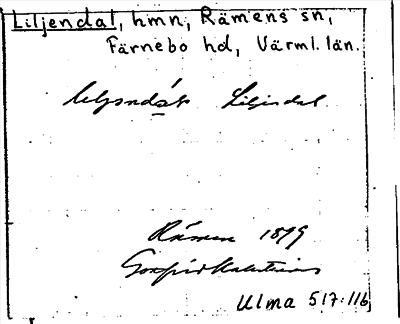 Liljendal, hmn, Rämens sn,
Färnebo hd, Värml. län.
Liljendal
Rämen 1879
Ulma 517:116